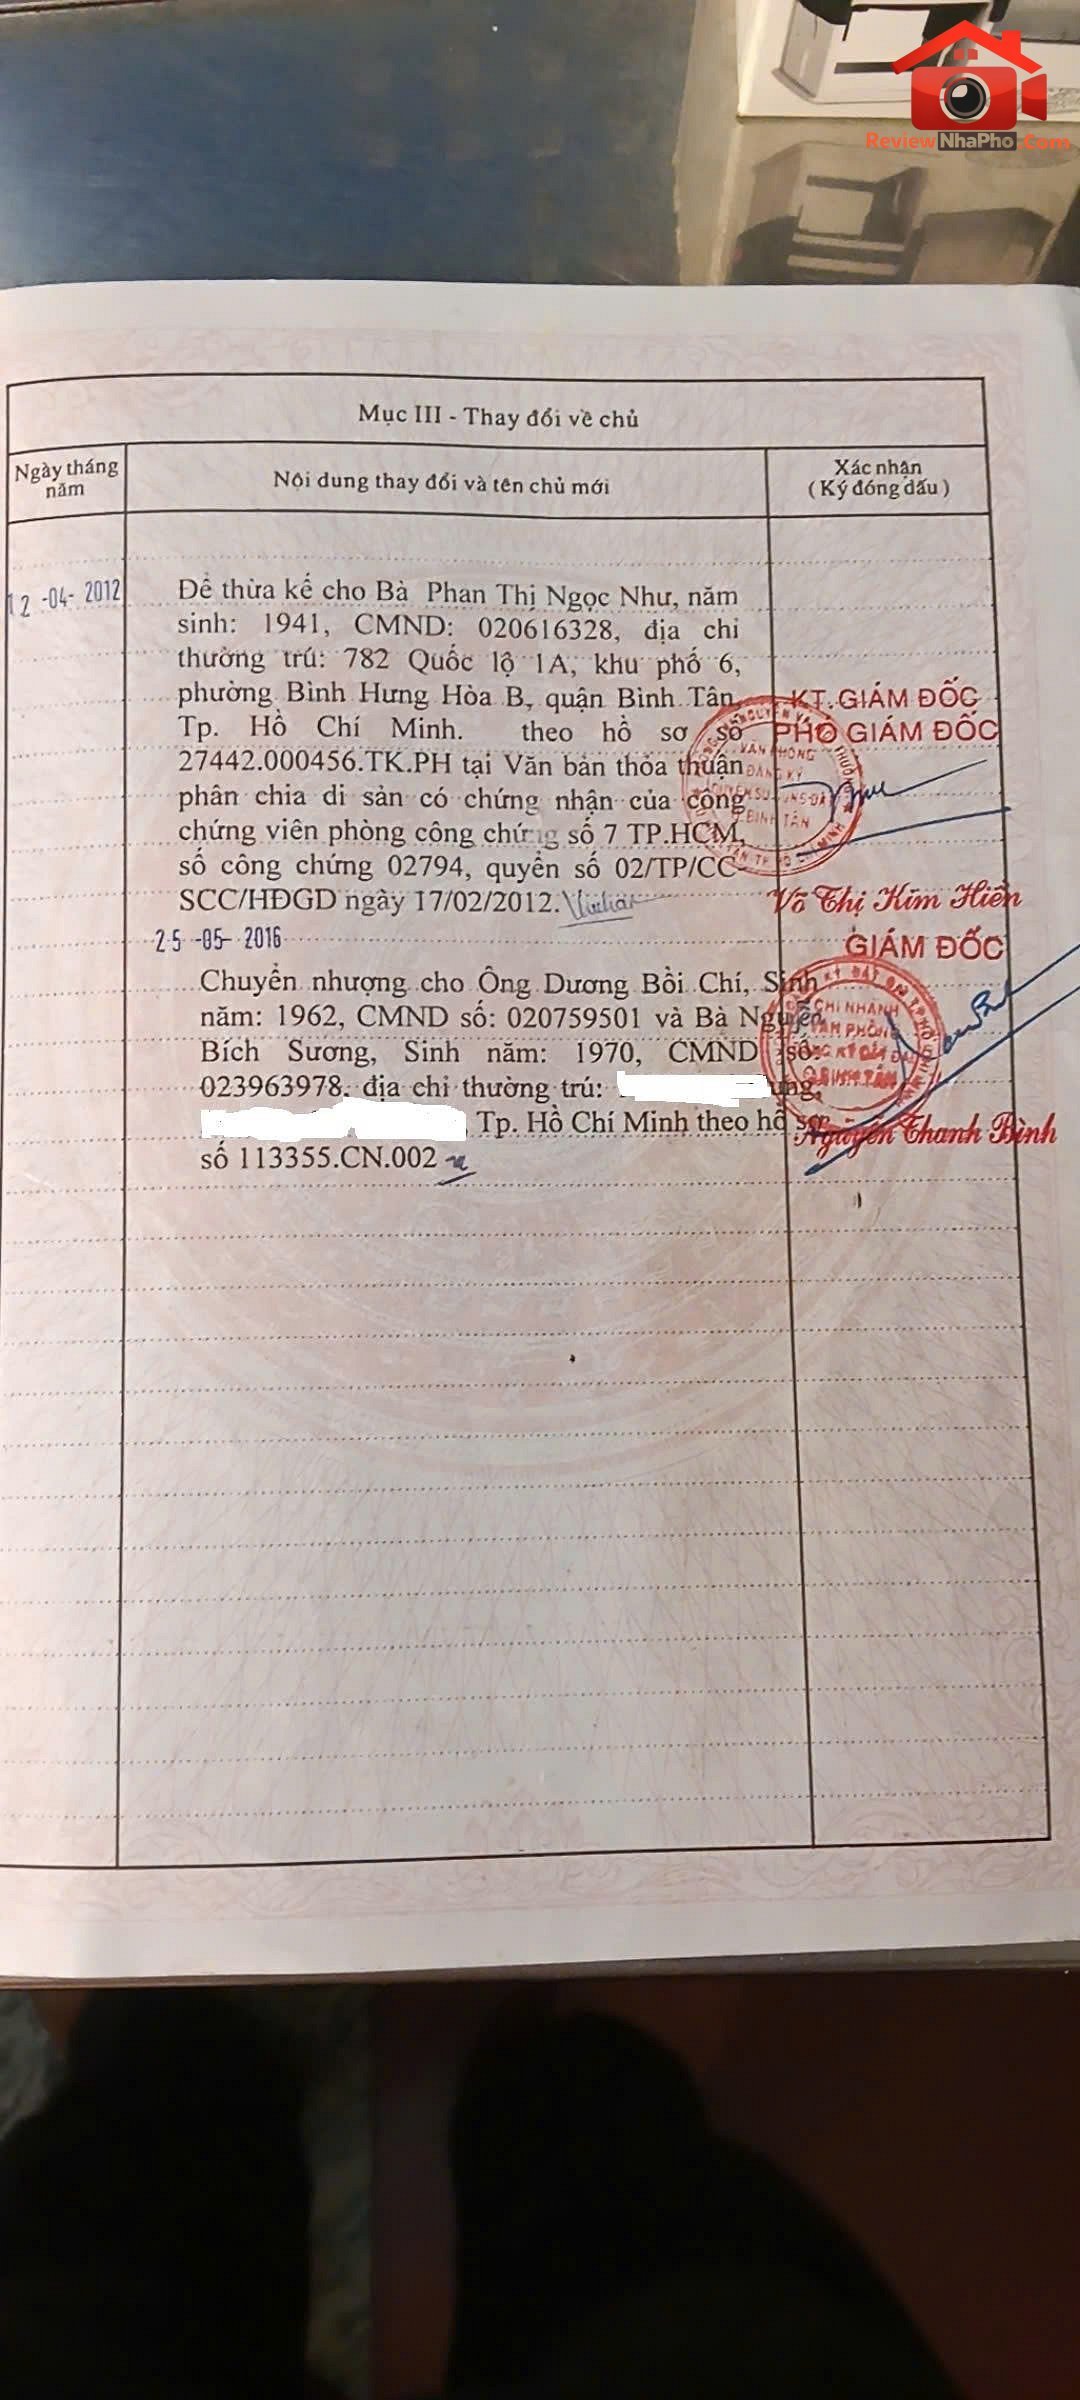 ReviewNhaPho.Com
Mục III - Thay đổi về chủ
Ngày tháng năm
Nội dung thay đổi và tên chủ mới
Xác nhận
( Ký đóng dấu )
12 -04- 2012
Để thừa kế cho Bà Phan Thị Ngọc Như, năm
sinh: 1941, CMND: 020616328, địa chỉ
thường trú: 782 Quốc lộ 1A, khu phố 6,
phường Bình Hưng Hòa B, quận Bình Tân,
Tp. Hồ Chí Minh. theo hồ sơ số
27442.000456.TK.PH tại Văn bản thỏa thuận
phân chia di sản có chứng nhận của công
chứng viên phòng công chứng số 7 TP.HCM,
số công chứng 02794, quyển số 02/TP/CC-
SCC/HĐGD ngày 17/02/2012.
KT. GIÁM ĐỐC
PHÓ GIÁM ĐỐC
VĂN PHÒNG
ĐĂNG KÝ
Q.BÌNH TÂN
Võ Thị Kim Hiền
25 -05- 2016
Chuyển nhượng cho Ông Dương Bồi Chí, Sinh
năm: 1962, CMND số: 020759501 và Bà Nguyễn
Bích Sương, Sinh năm: 1970, CMND số:
023963978, địa chỉ thường trú: ung,
Tp. Hồ Chí Minh theo hồ sơ
số 113355.CN.002
GIÁM ĐỐC
CHI NHÁNH
VĂN PHÒNG
ĐĂNG KÝ ĐẤT ĐAI
Q.BÌNH TÂN
Nguyễn Thanh Bình